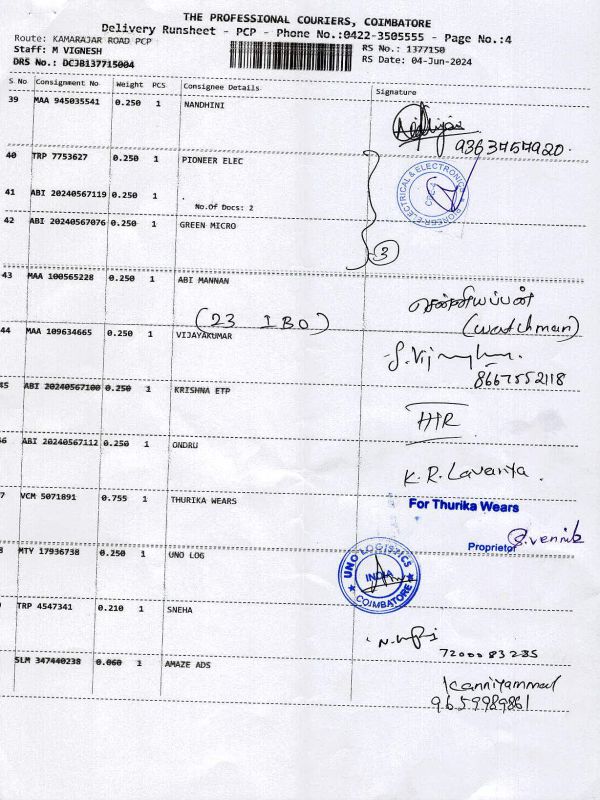 THE PROFESSIONAL COURIERS, COIMBATORE
Delivery Runsheet - PCP - Phone No.:0422-3505555 - Page No.:4
Route: KAMARAJAR ROAD PCP
RS No.: 1377150
Staff: M VIGNESH
RS Date: 04-Jun-2024
DRS No.: DCJB137715004
S No Consignment No Weight PCS Consignee Details Signature
39 MAA 945035541 0.250 1 NANDHINI
9363757920.
40 TRP 7753627 0.250 1 PIONEER ELEC
41 ABI 20240567119 0.250 1 .
No.Of Docs: 2
42 ABI 20240567076 0.250 1 GREEN MICRO
3
43 MAA 100565228 0.250 1 ABI MANNAN
சென்னியப்பன்
(23 IBO) (watchman)
44 MAA 109634665 0.250 1 VIJAYAKUMAR
8667552118
45 ABI 20240567100 0.250 1 KRISHNA ETP
HR
46 ABI 20240567112 0.250 1 ONDRU
K.R. Lavanya.
7 VCM 5071891 0.755 1 THURIKA WEARS
For Thurika Wears
Proprietor
8 MTY 17936738 0.250 1 UNO LOG
UNO LOGISTICS
INDIA
COIMBATORE
TRP 4547341 0.210 1 SNEHA
7200083235
SLM 347440238 0.060 1 AMAZE ADS
Kanniyammal
9659989861